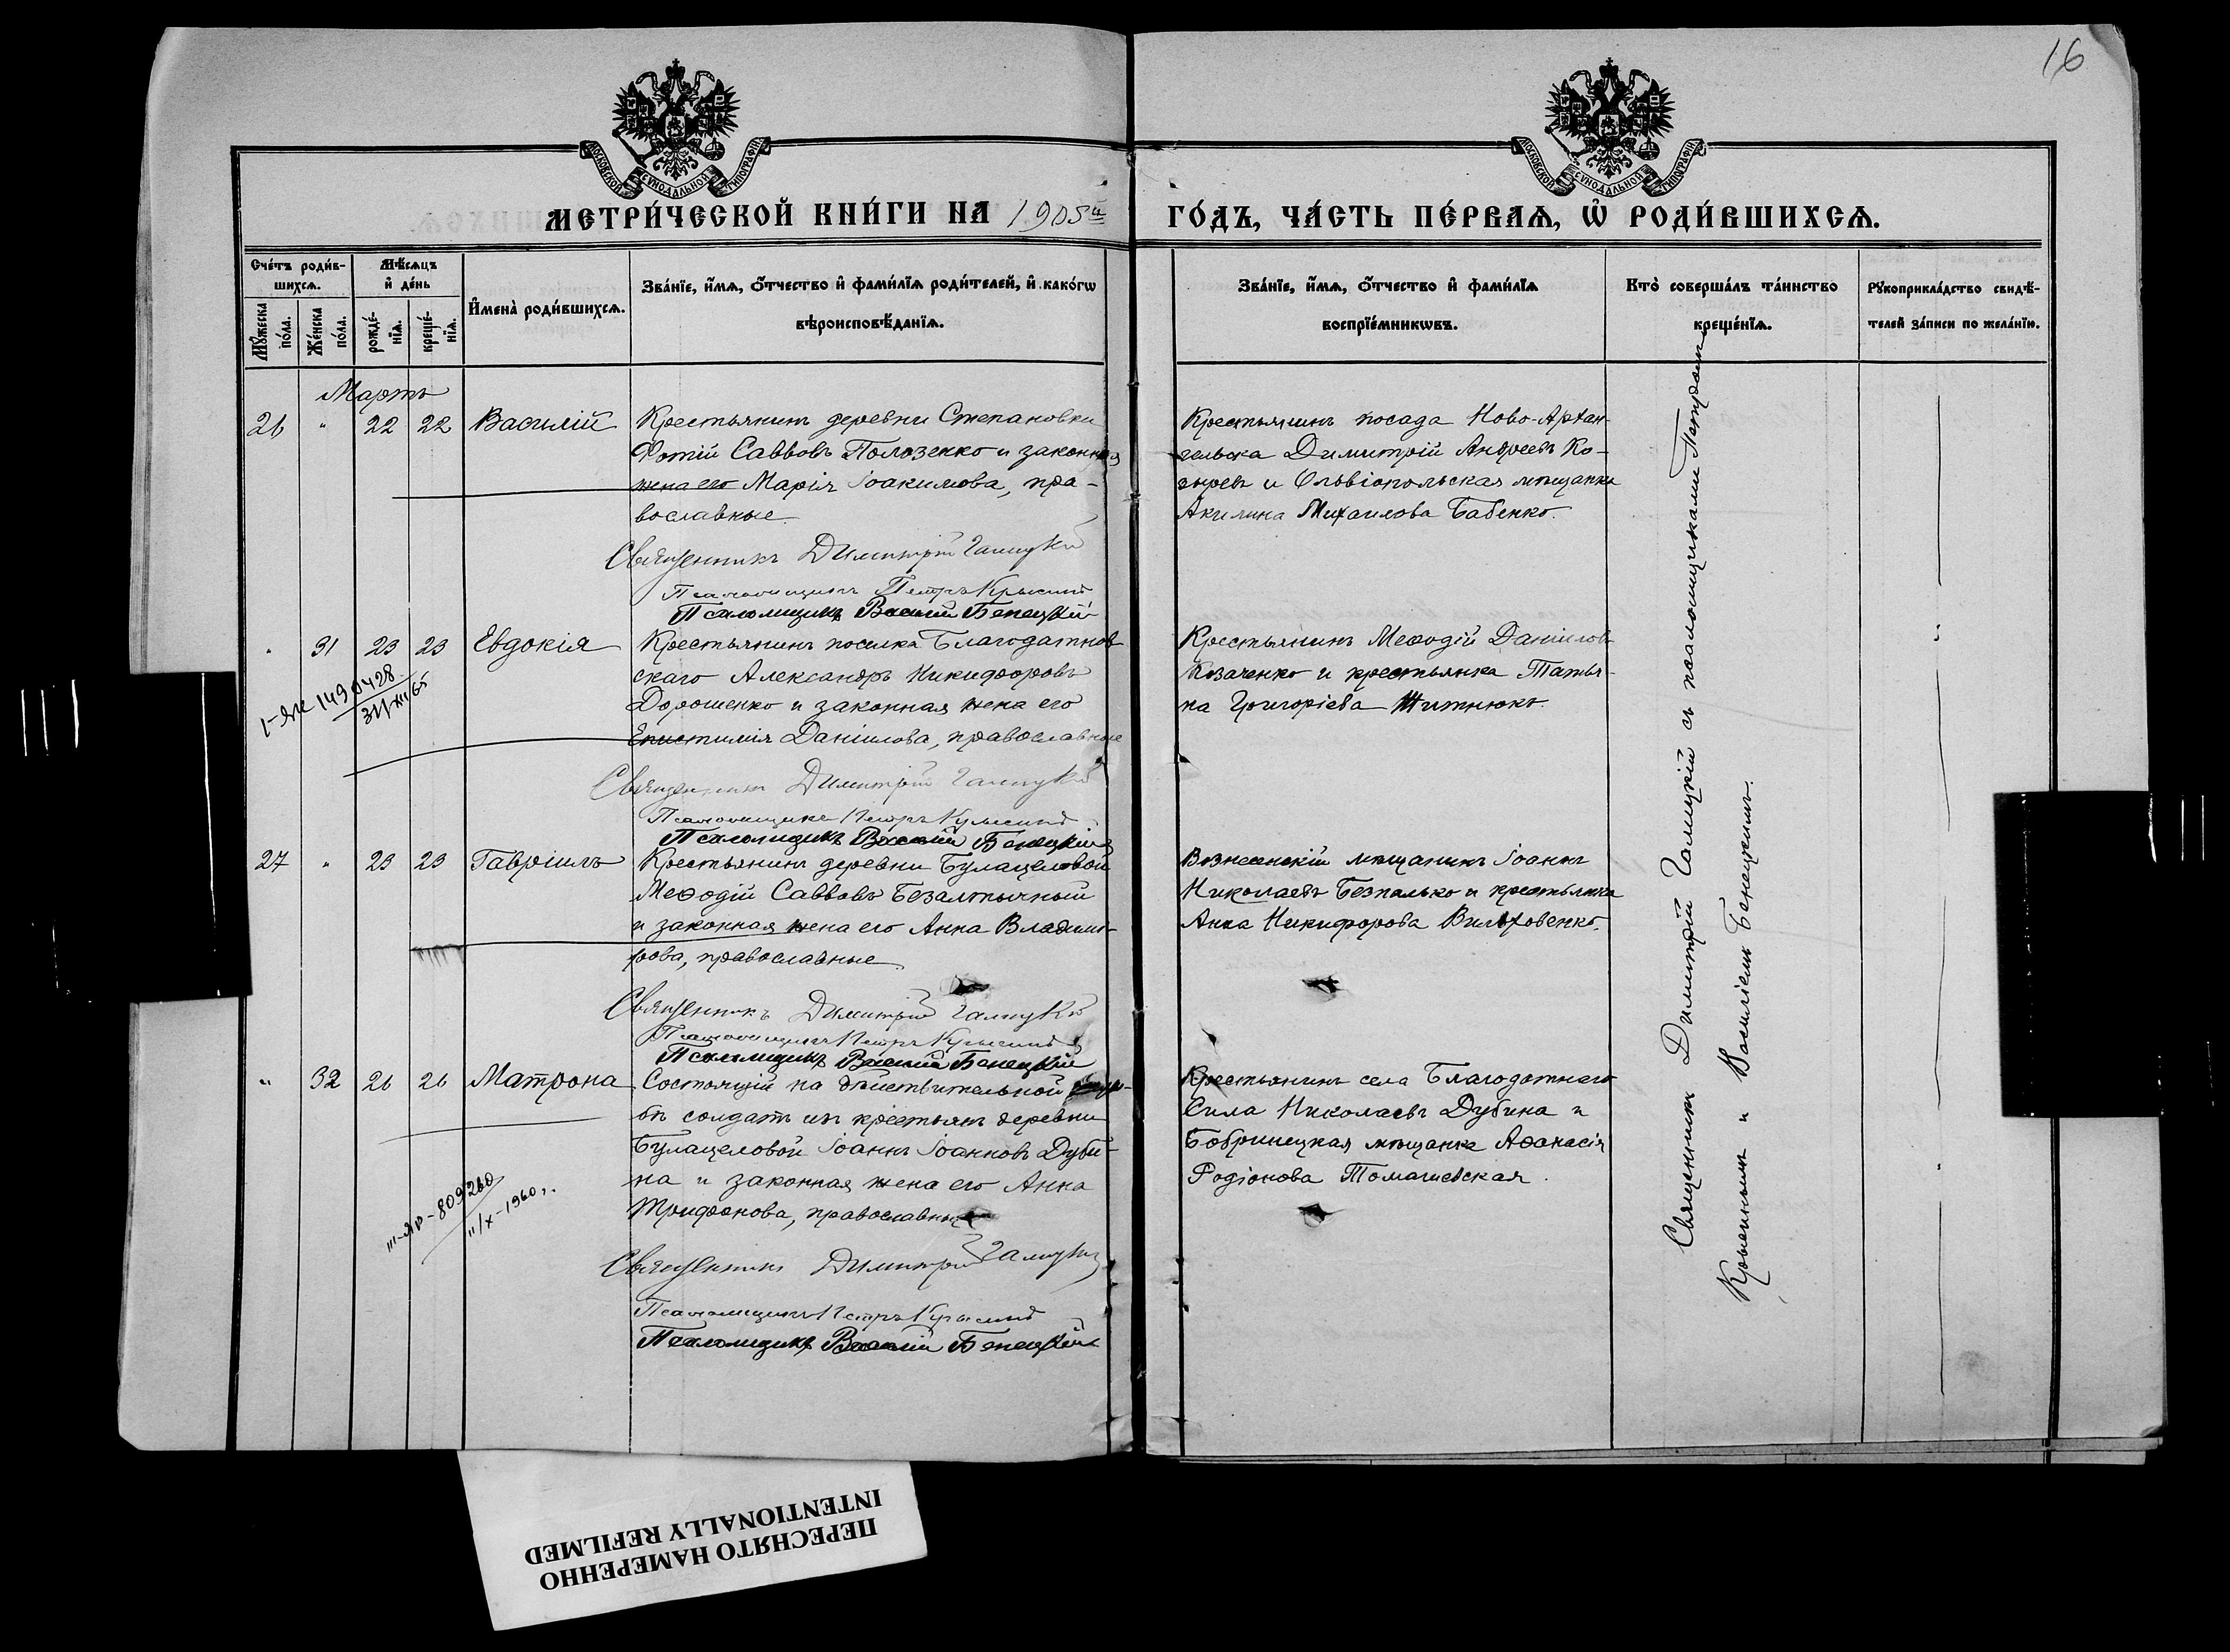 16
МОСКОВСКОЙ СѴНОДАЛЬНОЙ ТИПОГРАФІИ
МОСКОВСКОЙ СѴНОДАЛЬНОЙ ТИПОГРАФІИ
МЕТРИ́ЧЕСКОЙ КНИ́ГИ НА 1905й
ГО́ДЪ, ЧА́СТЬ ПЕ́РВАѦ, Ѡ҆ РОДИ́ВШИХСѦ.
Сче́тъ роди́в-
шихсѧ.
Мꙋ́жеска по́ла.
Же́нска по́ла.
Мѣ́сѧцъ
и҆ де́нь
рожде́-
нїѧ.
креще́-
нїѧ.
И҆мена̀ роди́вшихсѧ.
Зва́нїе, и҆́мѧ, ѻ҆́тчество и҆ фами́лїѧ роди́телей, и҆ како́гѡ
вѣроисповѣ́данїѧ.
Зва́нїе, и҆́мѧ, ѻ҆́тчество и҆ фами́лїѧ
воспрїе́мникѡвъ.
Кто̀ соверша́лъ та́инство
креще́нїѧ.
Рꙋкоприкла́дство свидѣ́-
телей за́писи по жела́нїю.
Мартъ
26 " 22 22 Василій
Крестьянинъ деревни Степановки
Фотій Саввовъ Полозенко и законная
жена его Марія Іоакимова, пра-
вославные.
Священникъ Димитрій Галицкій
Псаломщикъ Петръ Крысинъ
Псаломщикъ Василій Бенецкій
Крестьянинъ посада Ново-Архан-
гельска Димитрій Андреевъ Ко-
зыревъ и Ольвіопольская мѣщанка
Акилина Михаилова Бабенко.
" 31 23 23 Евдокія
1-ЯЖ 1490428
31/XII 65
Крестьянинъ поселка Благодатнов-
скаго Александръ Никифоровъ
Дорошенко и законная жена его
Епистимія Даніилова, православные
Священникъ Димитрій Галицкій
Псаломщикъ Петръ Крысинъ
Псаломщикъ Василій Бенецкій
Крестьянинъ Меѳодій Даніиловъ
Козаченко и крестьянка Татья-
на Григоріева Житнюкъ.
27 " 23 23 Гавріилъ
Крестьянинъ деревни Булацеловой
Меѳодій Саввовъ Безалтычный
и законная жена его Анна Владими-
рова, православные.
Священникъ Димитрій Галицкій
Псаломщикъ Петръ Крысинъ
Псаломщикъ Василій Бенецкій
Вознесенскій мѣщанинъ Іоаннъ
Николаевъ Безпалько и крестьянка
Анна Никифорова Вильховенко.
" 32 26 26 Матрона
III-ЯР-809260
11/X-1960г.
Состоящій на дѣйствительной служ-
бѣ солдатъ изъ крестьянъ деревни
Булацеловой Іоаннъ Іоанновъ Дуби-
на и законная жена его Анна
Трифонова, православные
Священникъ Димитрій Галицкій
Псаломщикъ Петръ Крысинъ
Псаломщикъ Василій Бенецкій
Крестьянинъ села Благодатнаго
Сила Николаевъ Дубина и
Бобринецкая мѣщанка Аѳанасія
Родіонова Томашевская.
Священникъ Димитрій Галицкій съ псаломщиками Петромъ
Крысинымъ и Василіемъ Бенецкимъ.
ПЕРЕСНЯТО НАМЕРЕННО
INTENTIONALLY REFILMED